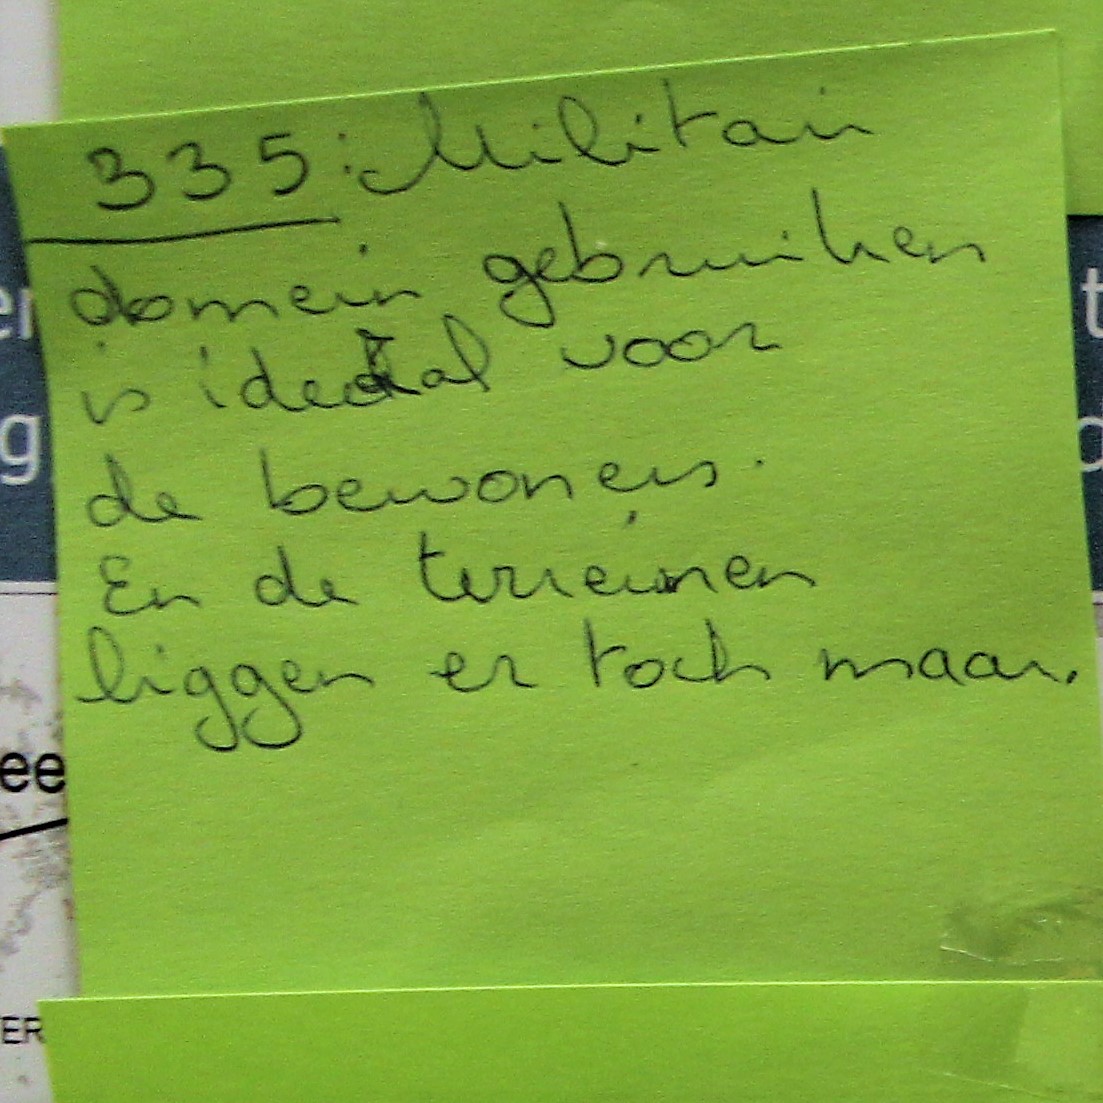 335: Militair
domein gebruiken
is ideaal voor
de bewoners.
En de terreinen
liggen er toch maar.
g
t
ee
ER